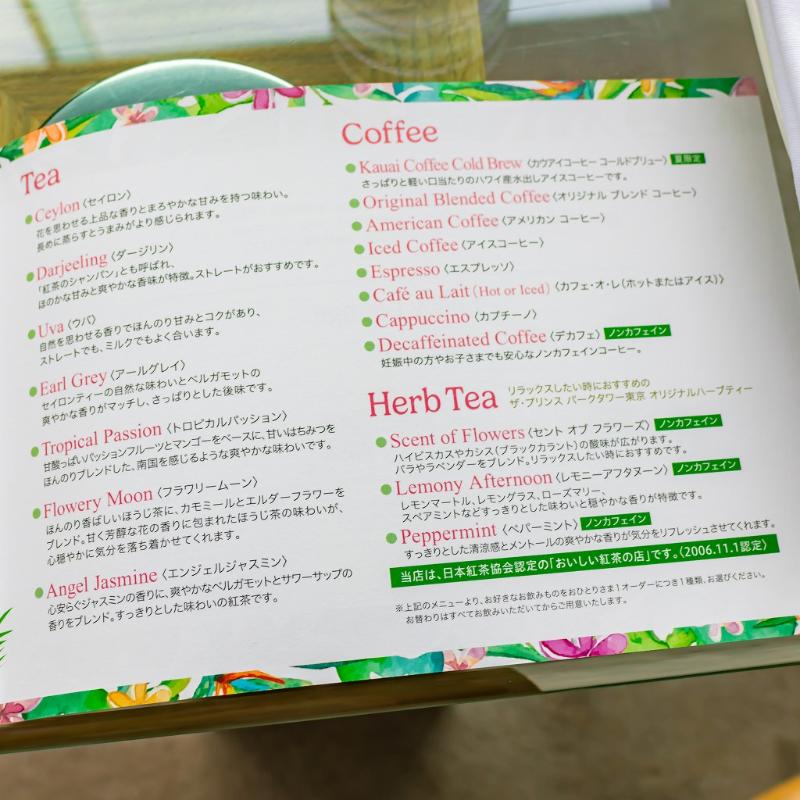 Tea
Ceylon〈セイロン〉
花を思わせる上品な香りとまろやかな甘みを持つ味わい。
長めに蒸らすとうまみがより感じられます。
Darjeeling〈ダージリン〉
「紅茶のシャンパン」とも呼ばれ、
ほのかな甘みと爽やかな香味が特徴。ストレートがおすすめです。
Uva〈ウバ〉
自然を思わせる香りでほんのり甘みとコクがあり、
ストレートでも、ミルクでもよく合います。
Earl Grey〈アールグレイ〉
セイロンティーの自然な味わいとベルガモットの
爽やかな香りがマッチし、さっぱりとした後味です。
Tropical Passion〈トロピカルパッション〉
甘酸っぱいパッションフルーツとマンゴーをベースに、甘いはちみつを
ほんのりブレンドした、南国を感じるような爽やかな味わいです。
Flowery Moon〈フラワリームーン〉
ほんのり香ばしいほうじ茶に、カモミールとエルダーフラワーを
ブレンド。甘く芳醇な花の香りに包まれたほうじ茶の味わいが、
心穏やかに気分を落ち着かせてくれます。
Angel Jasmine〈エンジェルジャスミン〉
心安らぐジャスミンの香りに、爽やかなベルガモットとサワーサップの
香りをブレンド。すっきりとした味わいの紅茶です。
Coffee
Kauai Coffee Cold Brew〈カウアイコーヒー コールドブリュー〉 夏限定
さっぱりと軽い口当たりのハワイ産水出しアイスコーヒーです。
Original Blended Coffee〈オリジナル ブレンド コーヒー〉
American Coffee〈アメリカン コーヒー〉
Iced Coffee〈アイスコーヒー〉
Espresso〈エスプレッソ〉
Café au Lait (Hot or Iced)〈カフェ・オ・レ(ホットまたはアイス)〉
Cappuccino〈カプチーノ〉
Decaffeinated Coffee〈デカフェ〉 ノンカフェイン
妊娠中の方やお子さまでも安心なノンカフェインコーヒー。
Herb Tea
リラックスしたい時におすすめの
ザ・プリンス パークタワー東京 オリジナルハーブティー
Scent of Flowers〈セント オブ フラワーズ〉 ノンカフェイン
ハイビスカスやカシス(ブラックカラント)の酸味が広がります。
バラやラベンダーをブレンド。リラックスしたい時におすすめです。
Lemony Afternoon〈レモニーアフタヌーン〉 ノンカフェイン
レモンマートル、レモングラス、ローズマリー、
スペアミントなどすっきりとした味わいと穏やかな香りが特徴です。
Peppermint〈ペパーミント〉 ノンカフェイン
すっきりとした清涼感とメントールの爽やかな香りが気分をリフレッシュさせてくれます。
当店は、日本紅茶協会認定の「おいしい紅茶の店」です。〈2006.11.1認定〉
※上記のメニューより、お好きなお飲みものをおひとりさま1オーダーにつき1種類、お選びください。
お替わりはすべてお飲みいただいてからご用意いたします。